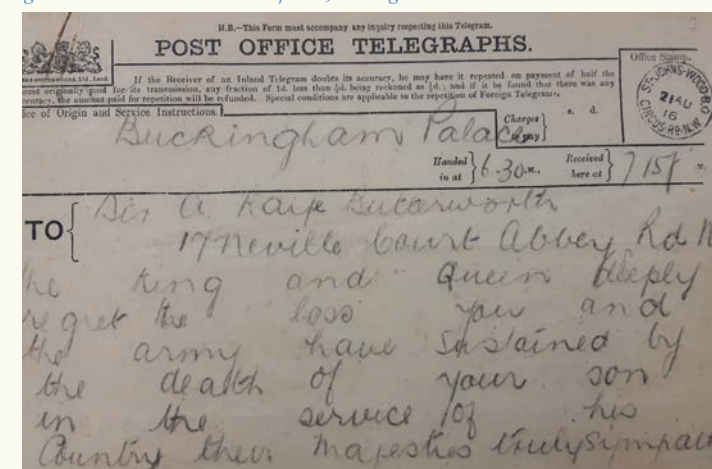 N.B.—This Form must accompany any inquiry respecting this Telegram.
POST OFFICE TELEGRAPHS.
If the Receiver of an Inland Telegram doubts its accuracy, he may have it repeated on payment of half the
originally paid for its transmission, any fraction of 1d. less than ½d. being reckoned as ½d.; and if it be found that there was any
the amount paid for repetition will be refunded. Special conditions are applicable to the repetition of Foreign Telegrams.
Office Stamp.
ST. JOHNS-WOOD B.O
21 AU
16
CIRCUS-RD. N.W.
ice of Origin and Service Instructions.
Buckingham Palace
Charges to pay
s. d.
Handed in at 6.30 M.
Received here at 7 15 M.
TO
Sir A. Kaye Butterworth
17 Neville Court Abbey Rd N
he King and Queen deeply
regret the loss you and
the army have sustained by
the death of your son
in the service of his
Country their Majesties truly sympath